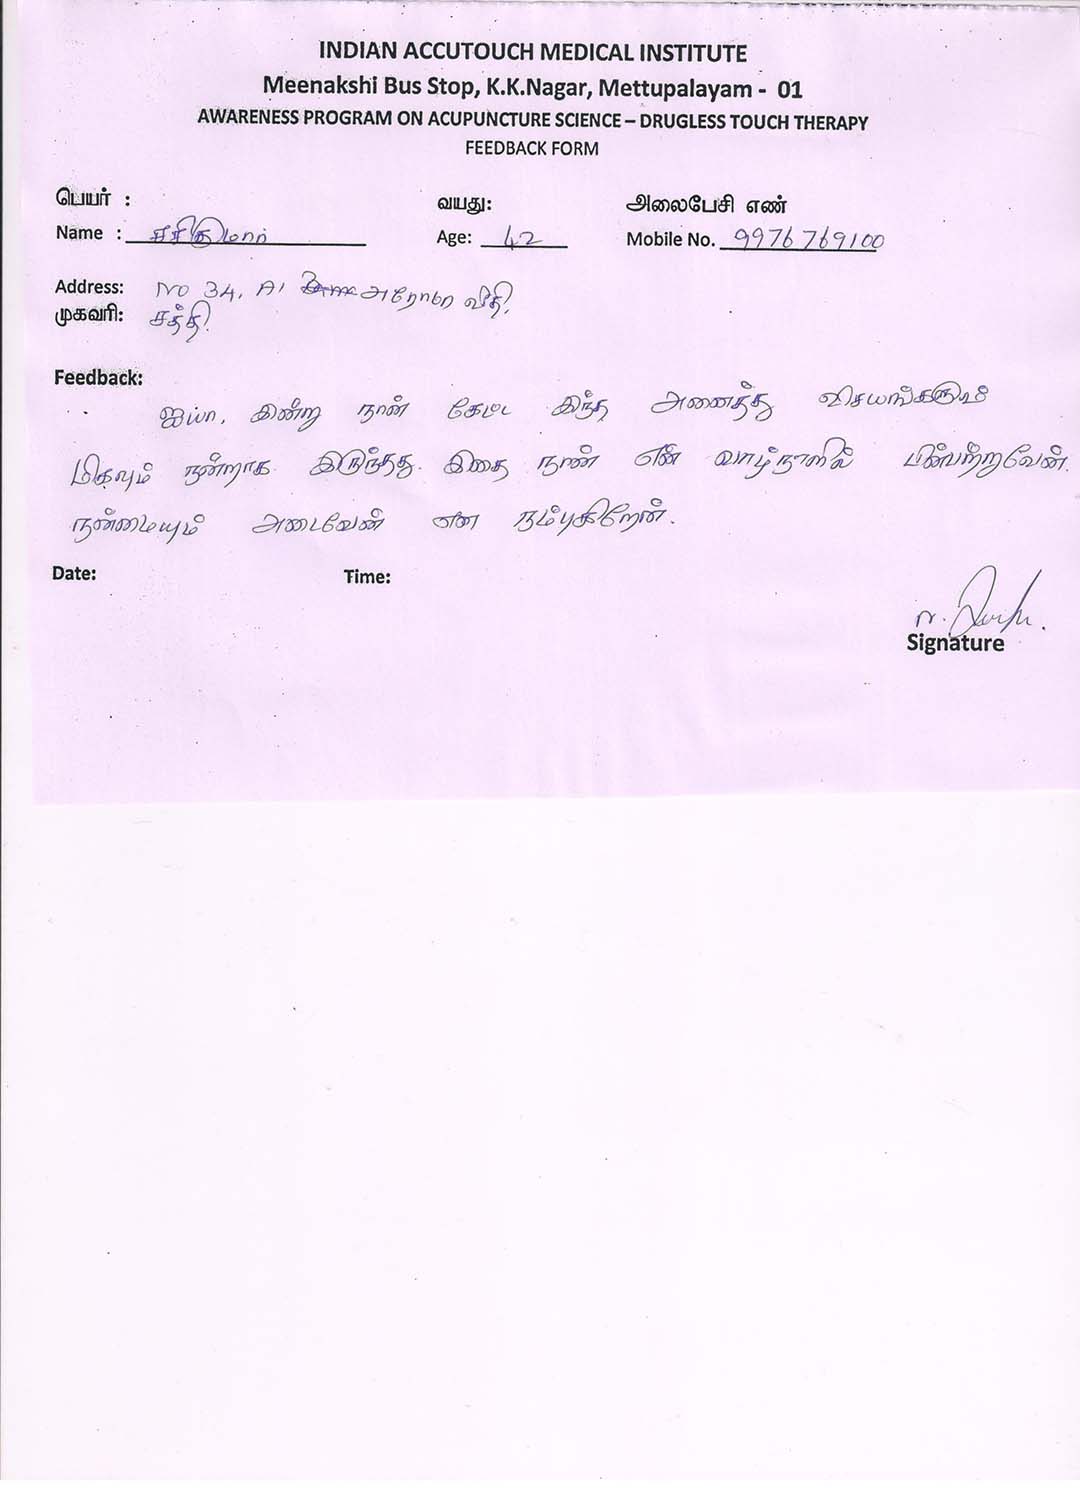 INDIAN ACCUTOUCH MEDICAL INSTITUTE
Meenakshi Bus Stop, K.K.Nagar, Mettupalayam - 01
AWARENESS PROGRAM ON ACUPUNCTURE SCIENCE – DRUGLESS TOUCH THERAPY
FEEDBACK FORM
பெயர் : வயது: அலைபேசி எண்
Name : Age: 42 Mobile No. 9976769100
Address: NO 34, A1 வீதி,
முகவரி: சத்தி.
Feedback:
ஐயா, இன்று நான் கேட்ட இந்த அனைத்து விசயங்களும்
மிகவும் நன்றாக இருந்தது. இதை நான் என் வாழ்நாளில் பின்பற்றுவேன்.
நன்மையும் அடைவேன் என நம்புகிறேன்.
Date: Time:
Signature